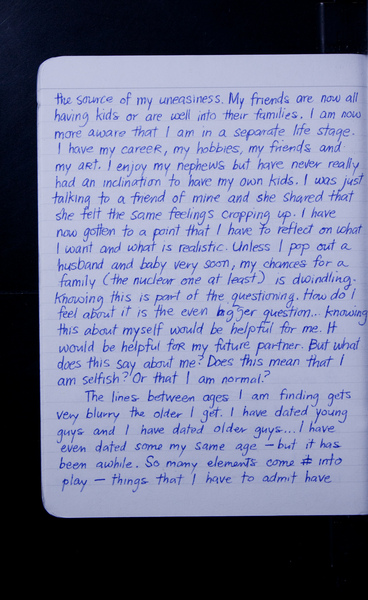 the source of my uneasiness. My friends are now all
having kids or are well into their families. I am now
more aware that I am in a separate life stage.
I have my career, my hobbies, my friends and
my art. I enjoy my nephews but have never really
had an inclination to have my own kids. I was just
talking to a friend of mine and she shared that
she felt the same feelings cropping up. I have
now gotten to a point that I have to reflect on what
I want and what is realistic. Unless I pop out a
husband and baby very soon, my chances for a
family (the nuclear one at least) is dwindling.
Knowing this is part of the questioning. How do I
feel about it is the even bigger question... Knowing
this about myself would be helpful for me. It
would be helpful for my future partner. But what
does this say about me? Does this mean that I
am selfish? Or that I am normal?
The lines between ages I am finding gets
very blurry the older I get. I have dated young
guys and I have dated older guys... I have
even dated some my same age – but it has
been awhile. So many elements come into
play – things that I have to admit have